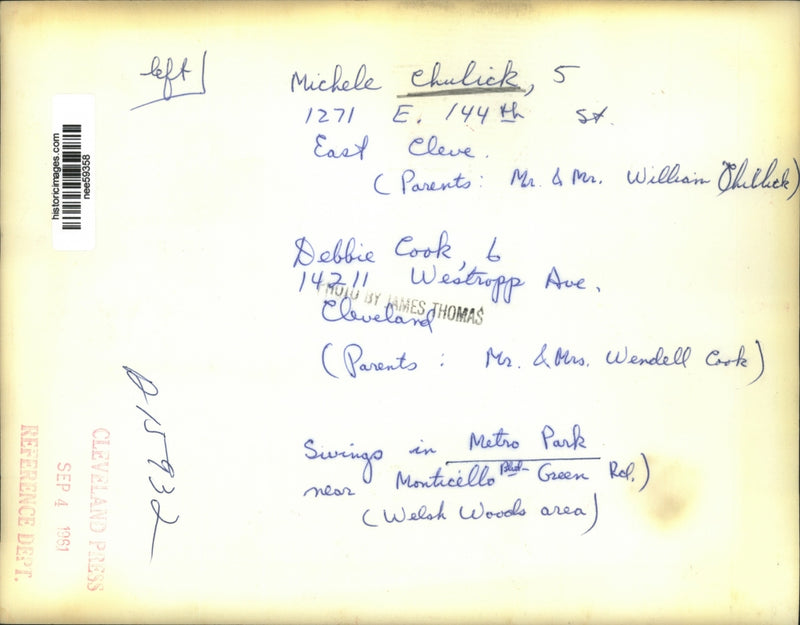 left
Michele Chulick, 5
1271 E. 144th St.
East Cleve.
(Parents: Mr. & Mr. William Chillick)
Debbie Cook, 6
14211 Westropp Ave.
Cleveland
PHOTO BY JAMES THOMAS
(Parents: Mr. & Mrs. Wendell Cook)
Swings in Metro Park
near Monticello Blvd- Green Rd.)
(Welsh Woods area)
historicimages.com
nee59358
015932
CLEVELAND PRESS
SEP 4 1961
REFERENCE DEPT.